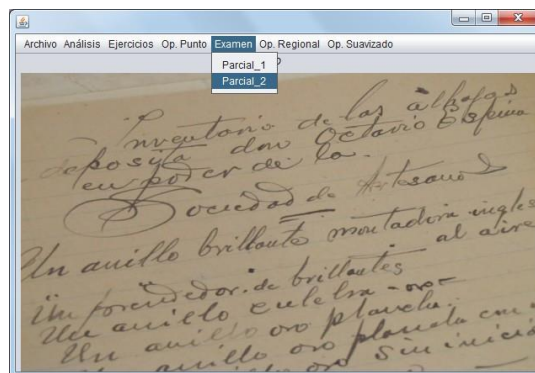 Archivo Análisis Ejercicios Op. Punto Examen Op. Regional Op. Suavizado
Parcial_1
Parcial_2
Inventario de las alhajas
deposita don Octavio Espina
en poder de la
Sociedad de Artesanos
Un anillo brillante montadura ingles
al aire
Un prendedor de brillantes
Un anillo culebra - oro -
Un anillo oro plancha
Un anillo oro plancha con
anillo oro sin inicia